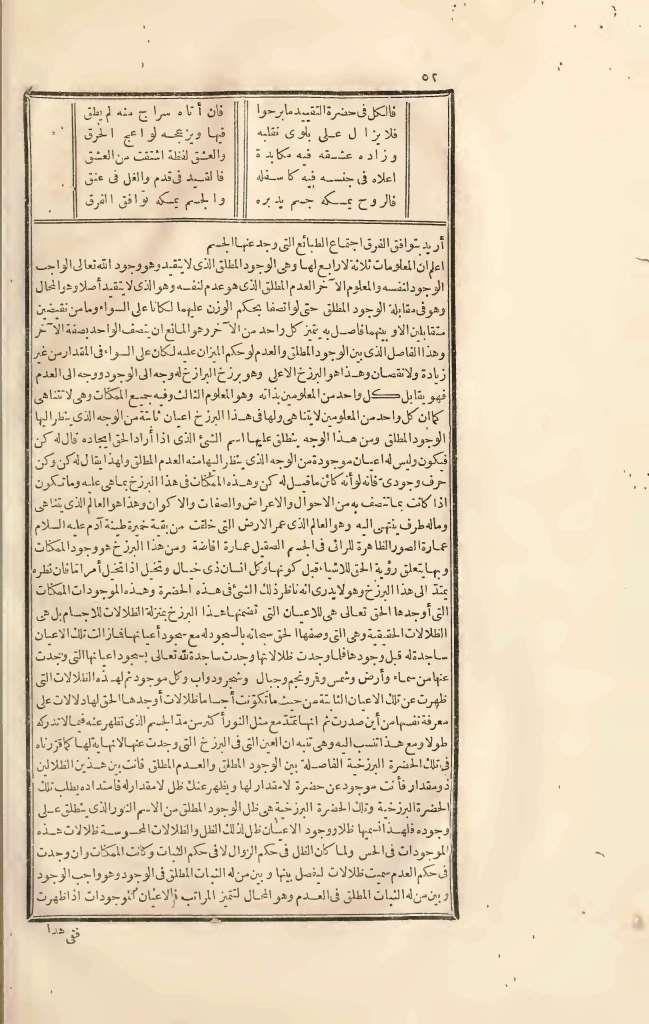 ٥٢
فالكل في حضرة التقييد ما برحوا فان أتاه سراج منه لم يطق
فلا يزال على بلوى تقلبه فيها ويزعجه لواعج الحرق
وزاده عشقه فيه مكابدة والعشق لفظة اشتقت من العشق
اعلاه في جنسه فيه كاسفله فالقيد في قدم والغل في عنق
فالروح يمسكه جسم يدبره والجسم يمسكه توافق الفرق
أريد بتوافق الفرق اجتماع الطبائع التي وجد عنها الجسم
اعلم ان المعلومات ثلاثة لا رابع لها وهي الوجود المطلق الذي لا يتقيد وهو وجود الله تعالى الواجب
الوجود لنفسه والمعلوم الآخر العدم المطلق الذي هو عدم لنفسه وهو الذي لا يتقيد أصلا وهو المحال
وهو في مقابلة الوجود المطلق حتى لو اتصفا بحكم الوزن عليهما لكانا على السواء وما من نقيضين
متقابلين الا وبينهما فاصل به يتميز كل واحد من الآخر وهو المانع ان يتصف الواحد بصفة الآخر
وهذا الفاصل الذي بين الوجود المطلق والعدم لو حكم الميزان عليه لكان على السواء في المقدار من غير
زيادة ولا نقصان وهذا هو البرزخ الاعلى وهو برزخ البرازخ له وجه الى الوجود ووجه الى العدم
فهو يقابل كل واحد من المعلومين بذاته وهو المعلوم الثالث وفيه جميع الممكنات وهي لا تتناهى
كما ان كل واحد من المعلومين لا يتناهى ولها في هذا البرزخ اعيان ثابتة من الوجه الذي ينظر اليها
الوجود المطلق ومن هذا الوجه ينطلق عليها اسم الشئ الذي اذا أراد الحق ايجاده قال له كن
فيكون وليس له اعيان موجودة من الوجه الذي ينظر اليها منه العدم المطلق ولهذا يقال له كن وكن
حرف وجودي فانه لو أنه كائن ما قيل له كن وهذه الممكنات في هذا البرزخ بما هي عليه وما تكون
اذا كانت بما تتصف به من الاحوال والاعراض والصفات والاكوان وهذا هو العالم الذي يتناهى
وماله طرف ينتهى اليه وهو العالم الذي عمر الارض التي خلقت من بقية خميرة طينة آدم عليه السلام
عمارة الصور الظاهرة للرائي في الجسم الصقيل عمارة افاضة ومن هذا البرزخ هو وجود الممكنات
وبها يتعلق رؤية الحق للاشياء قبل كونها وكل انسان ذي خيال وتخيل اذا تخيل أمرا ما فان نظره
يمتد الى هذا البرزخ وهو لا يدري انه ناظر ذلك الشئ في هذه الحضرة وهذه الموجودات الممكنات
التي أوجدها الحق تعالى هي للاعيان التي تضمنها هذا البرزخ بمنزلة الظلالات للاجسام بل هي
الظلالات الحقيقية وهي التي وصفها الحق سبحانه بالسجود له مع سجود أعيانها فما زالت تلك الاعيان
ساجدة له قبل وجودها فلما وجدت ظلالاتها وجدت ساجدة لله تعالى بسجود اعيانها التي وجدت
عنها من سماء وأرض وشمس وقمر ونجم وجبال وشجر ودواب وكل موجود ثم لهذه الظلالات التي
ظهرت عن تلك الاعيان الثابتة من حيث ما تكونت أجساما ظلالات أوجدها الحق لها دلالات على
معرفة نفسها من أين صدرت ثم انها تمتد مع مثل النور أكثر من مد الجسم الذي تظهر عنه فيما لا تدركه
طولا ومع هذا تنسب اليه وهي تنبه ان العين التي في البرزخ التي وجدت عنها لا نهاية لها كما قررناه
في تلك الحضرة البرزخية الفاصلة بين الوجود المطلق والعدم المطلق فانت بين هذين الظلالين
ذو مقدار فأنت موجود عن حضرة لا مقدار لها ويظهر عنك ظل لا مقدار له فامتداده يطلب تلك
الحضرة البرزخية وتلك الحضرة البرزخية هي ظل الوجود المطلق من الاسم النور الذي ينطلق على
وجوده فلهذا نسميها ظلا ووجود الاعيان ظل لذلك الظل والظلالات المحسوسة ظلالات هذه
الموجودات في الحس ولما كان الظل في حكم الزوال لا في حكم الثبات وكانت الممكنات وان وجدت
في حكم العدم سميت ظلالات ليفصل بينها وبين من له الثبات المطلق في الوجود وهو واجب الوجود
وبين من له الثبات المطلق في العدم وهو المحال لتتميز المراتب فالاعيان الموجودات اذا ظهرت
ففي هذا